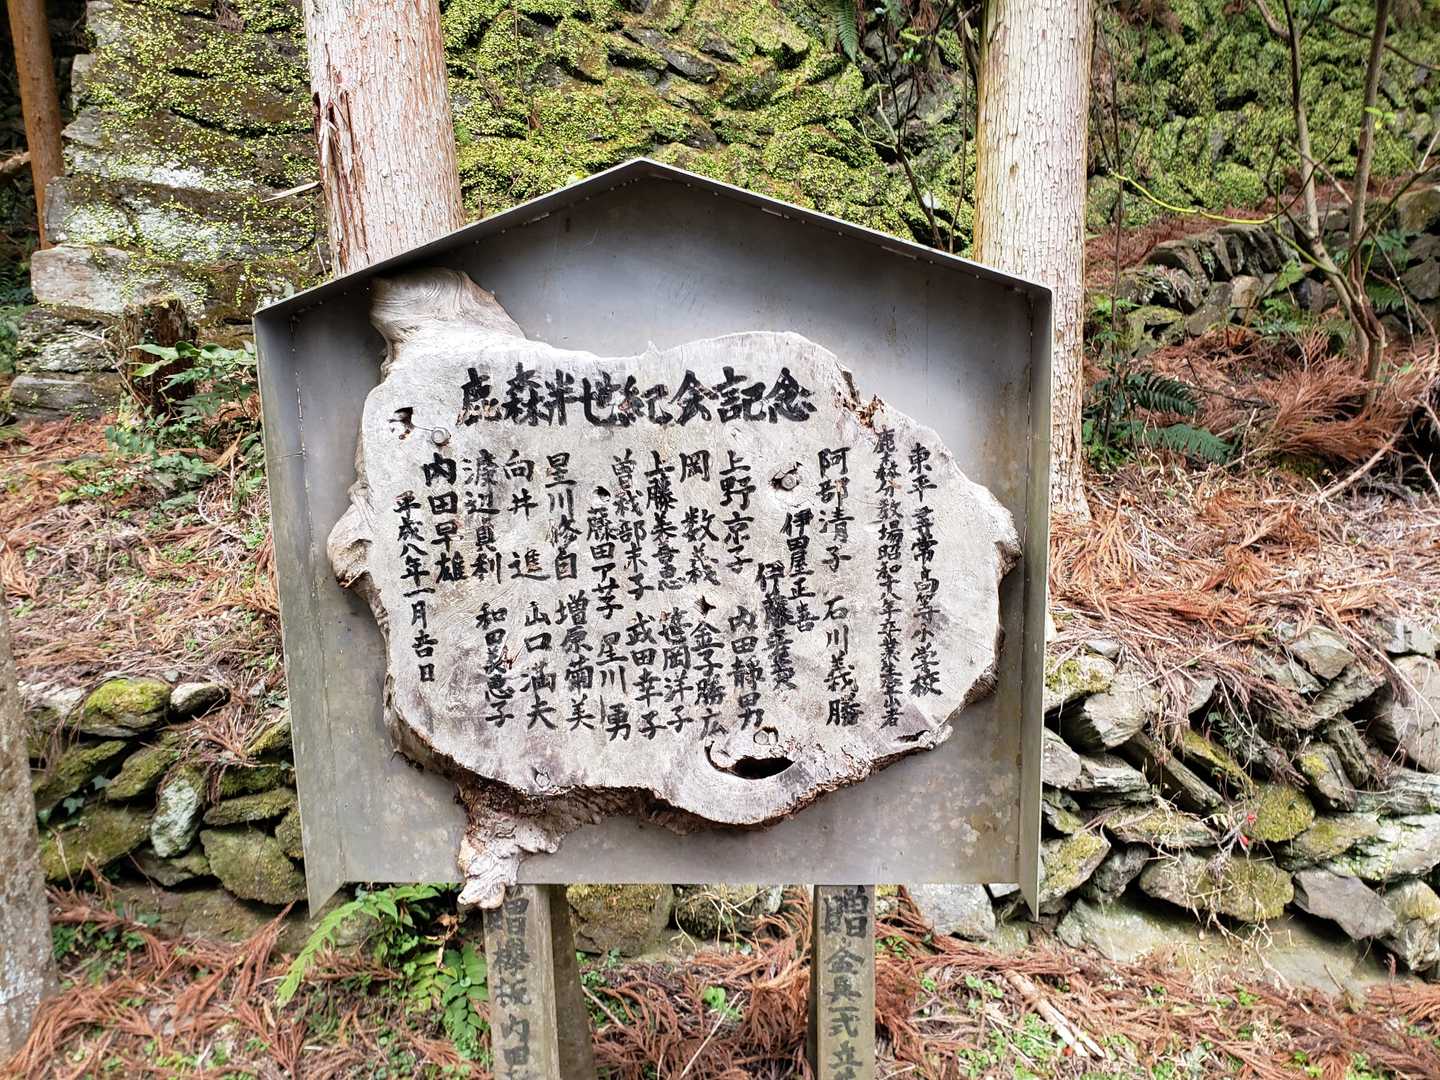 鹿森半世紀会記念
東平尋常高等小学校
鹿森分教場昭和十八年卒業生十八名
阿部清子 石川義勝
伊田屋正善
伊藤
上野京子 内田静男
岡 数義 金子勝広
笹岡洋子
曽我部末子 武田幸子
藤田アサ子 星川 勇
星川修自 増原菊美
向井 進 山口満夫
渡辺貞利 和田美恵子
内田早雄
平成八年一月吉日
贈 欅板 内田
贈 金具一式